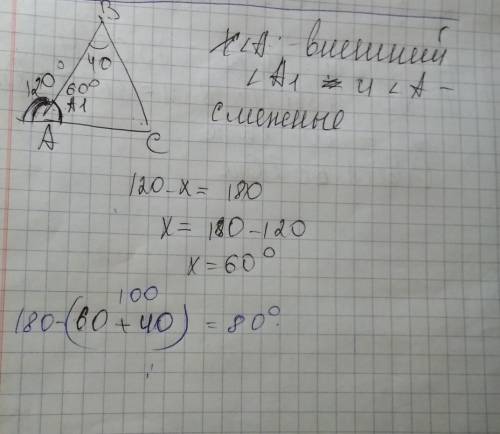 B
40
120°
60°
A1
A
C
<A - внешний
<A1 и <A -
смежные
120 - x = 180
x = 180 - 120
x = 60°
100
180 - (60 + 40) = 80°